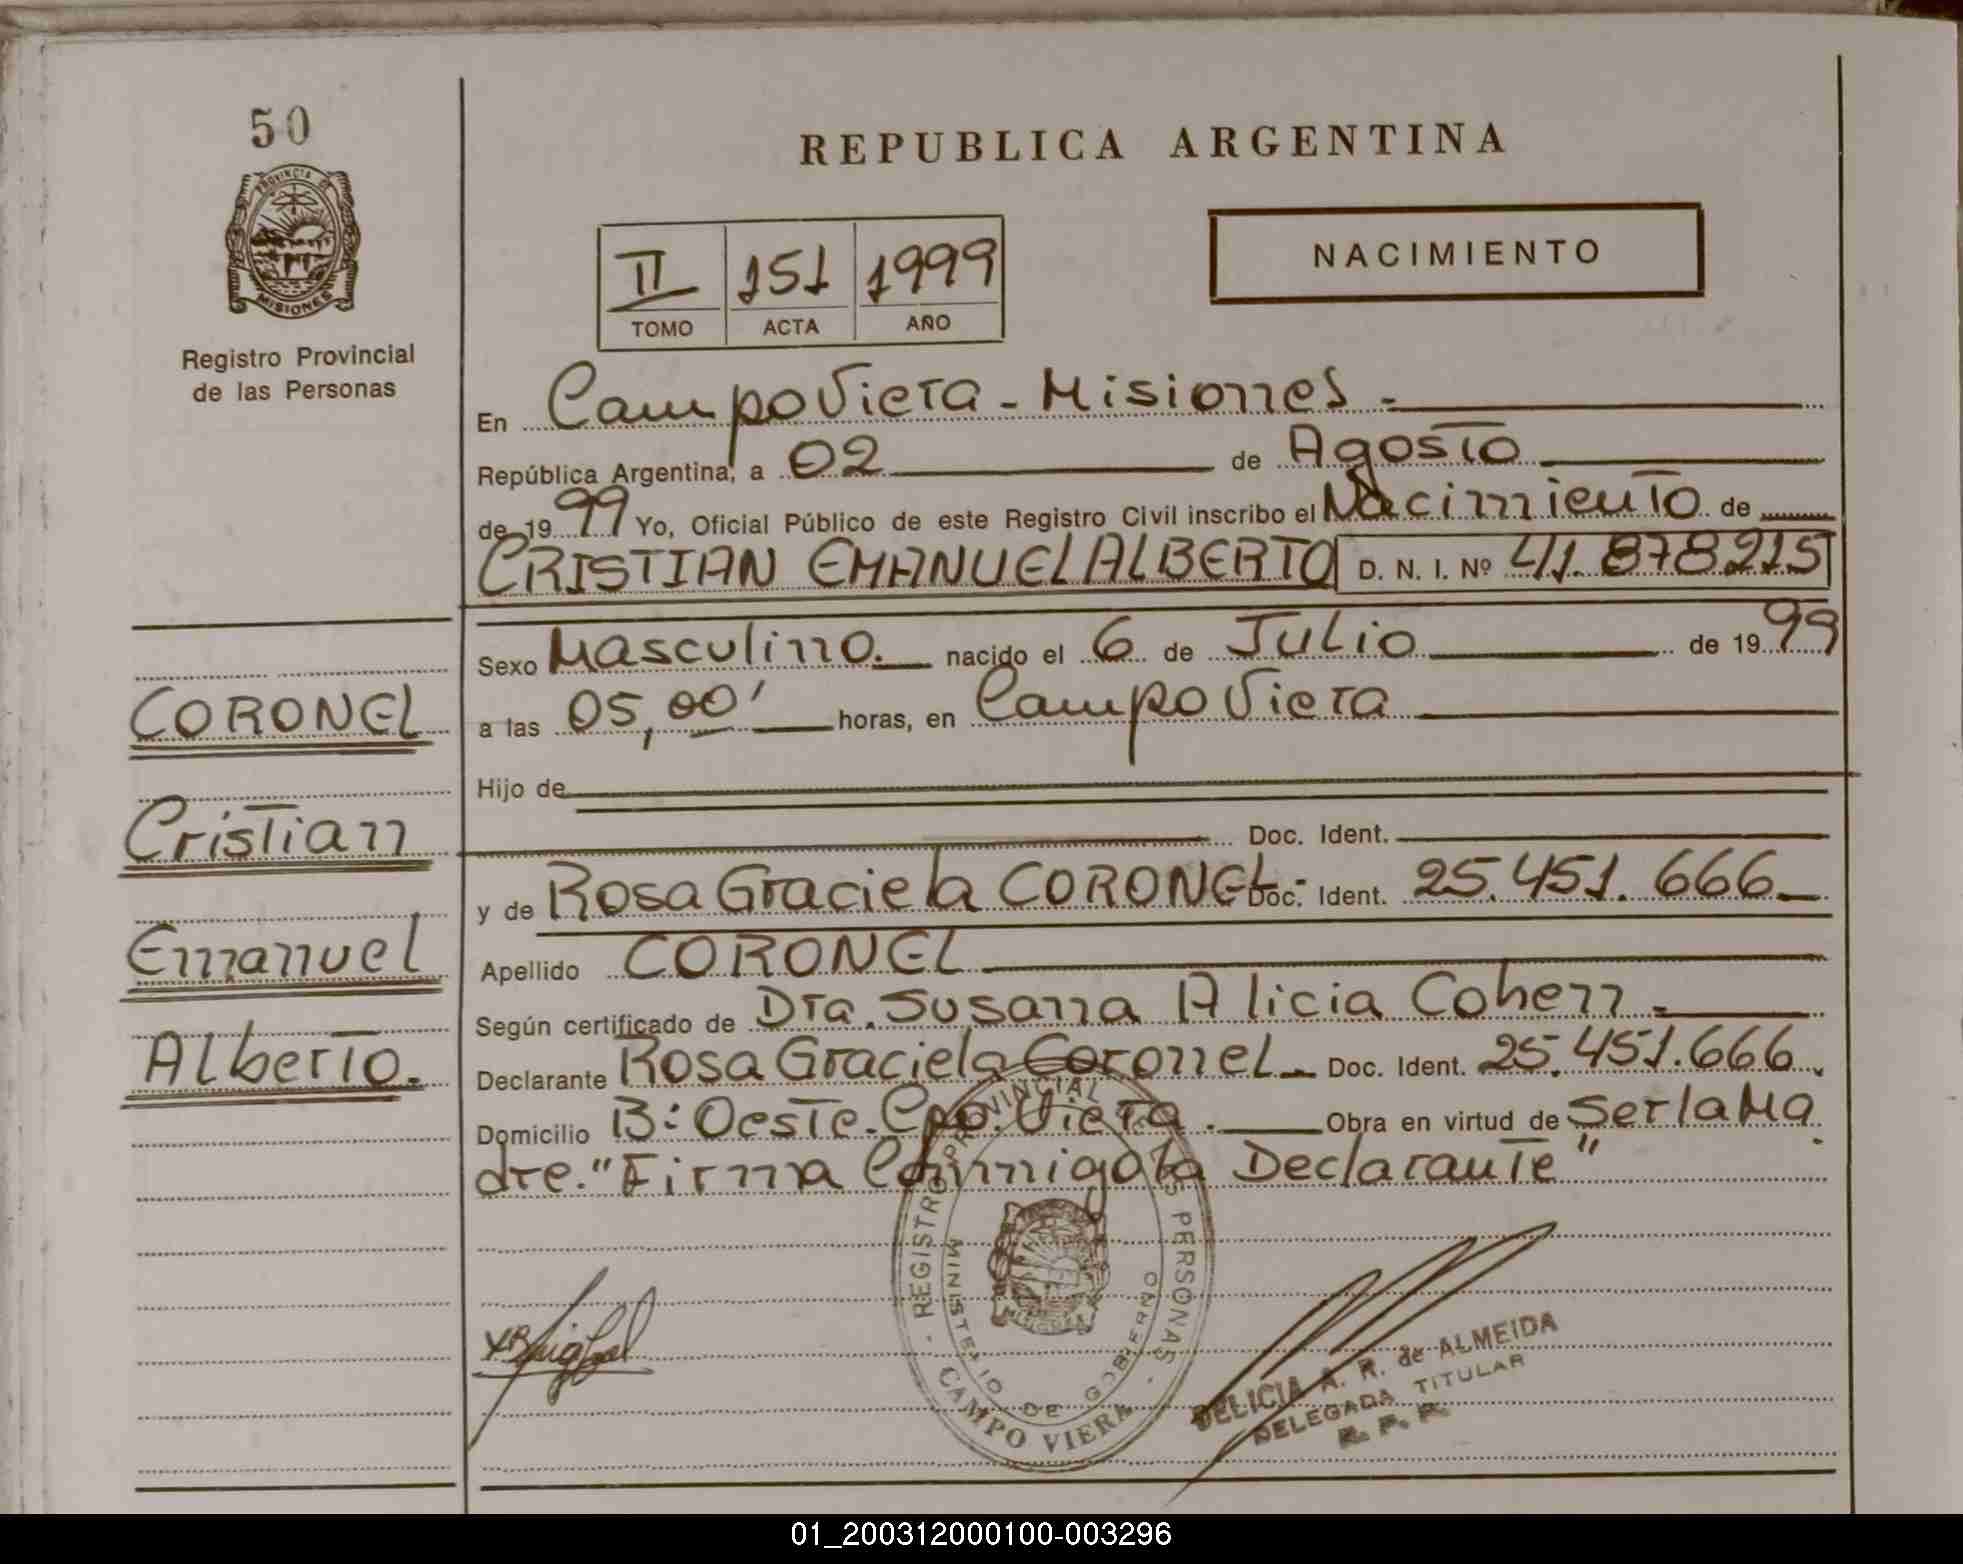 50
PROVINCIA DE
MISIONES
Registro Provincial
de las Personas
REPUBLICA ARGENTINA
II 151 1999
TOMO ACTA AÑO
NACIMIENTO
En Campo Viera - Misiones -
República Argentina, a 02 de Agosto
de 1999 Yo, Oficial Público de este Registro Civil inscribo el Nacimiento de
CRISTIAN EMANUEL ALBERTO D. N. I. Nº 41.878215
Sexo Masculino. nacido el 6 de Julio de 1999
a las 05,00' horas, en Campo Viera
Hijo de
Doc. Ident.
y de Rosa Graciela CORONEL.- Doc. Ident. 25.451.666
Apellido CORONEL
Según certificado de Dra. Susana Alicia Cohen.
Declarante Rosa Graciela Coronel. Doc. Ident. 25.451.666.
Domicilio B: Oeste. Cpo. Viera. Obra en virtud de Ser la Ma
dre. "Firma Conmigo la Declarante"
CORONEL
Cristian
Emanuel
Alberto.
REGISTRO PROVINCIAL PERSONAS
MINISTERIO DE GOBIERNO
CAMPO VIERA
DELICIA A. R. de ALMEIDA
DELEGADA TITULAR
R. P. P.
01_200312000100-003296